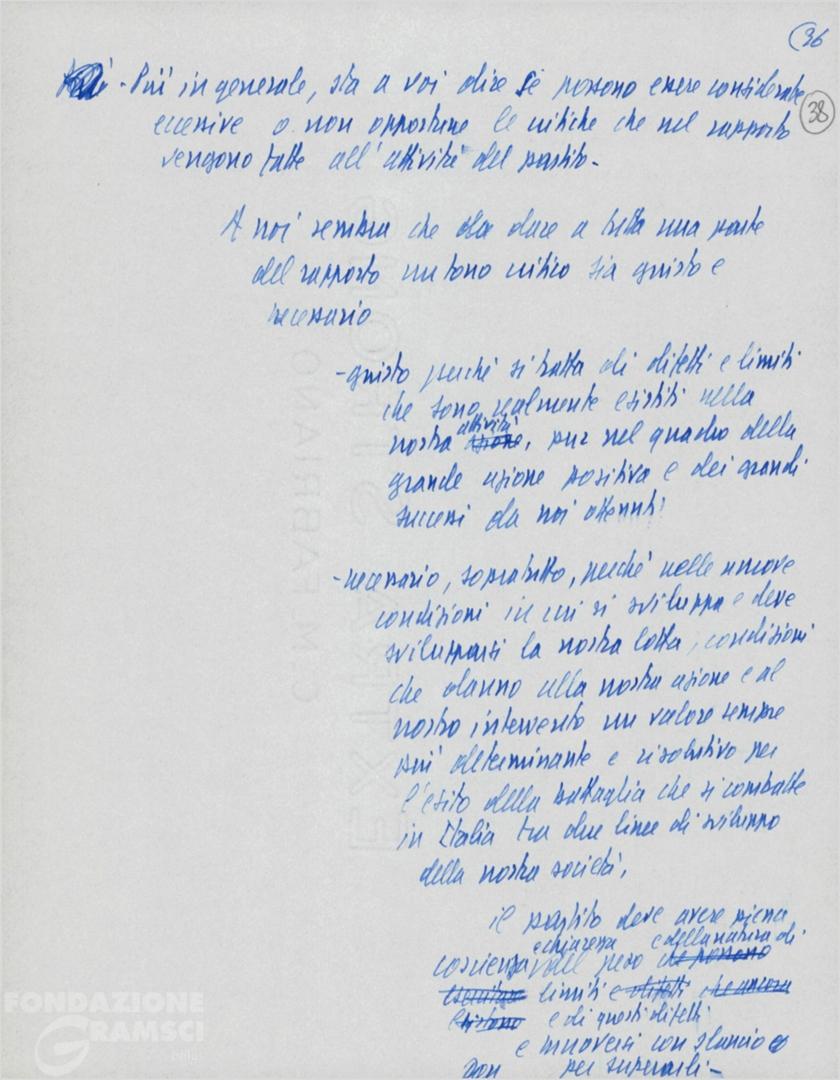 36
38
- Più in generale, sta a voi dire se possono essere considerate
eccessive o non opportune le critiche che nel rapporto
vengono fatte all'attività del partito -
A noi sembra che dare a tutta una parte
del rapporto un tono critico sia giusto e
necessario
- giusto perché si tratta di difetti e limiti
che sono realmente esistiti nella
attività
nostra azione, pur nel quadro della
grande azione positiva e dei grandi
successi da noi ottenuti
- necessario, soprattutto, perché nelle nuove
condizioni in cui si sviluppa e deve
svilupparsi la nostra lotta, condizioni
che danno alla nostra azione e al
nostro intervento un valore sempre
più determinante e risolutivo per
l'esito della battaglia che si combatte
in Italia tra due linee di sviluppo
della nostra società,
il partito deve avere piena
e chiarezza e della natura di
coscienza del peso che possono
esercitare limiti e difetti che ancora
esistono e di questi difetti
e muoversi con slancio
per superarli -
C.M. FABRIANO
FONDAZIONE
GRAMSCI